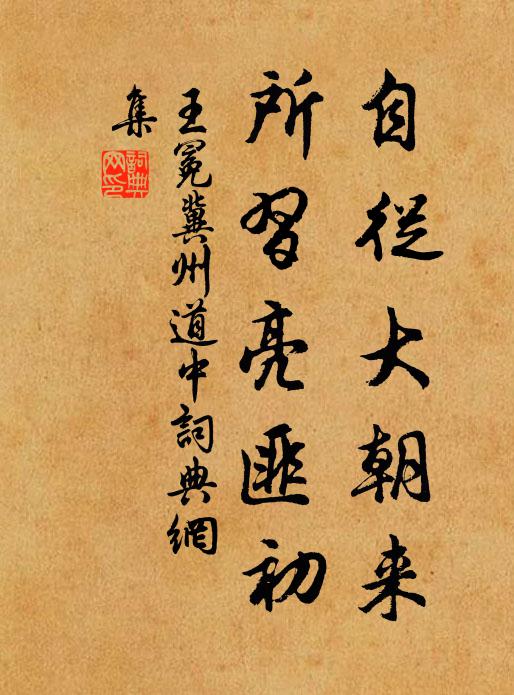 自從大朝来
所習亮匪初
王冕冀州道中詞典網
集
詞典
网印